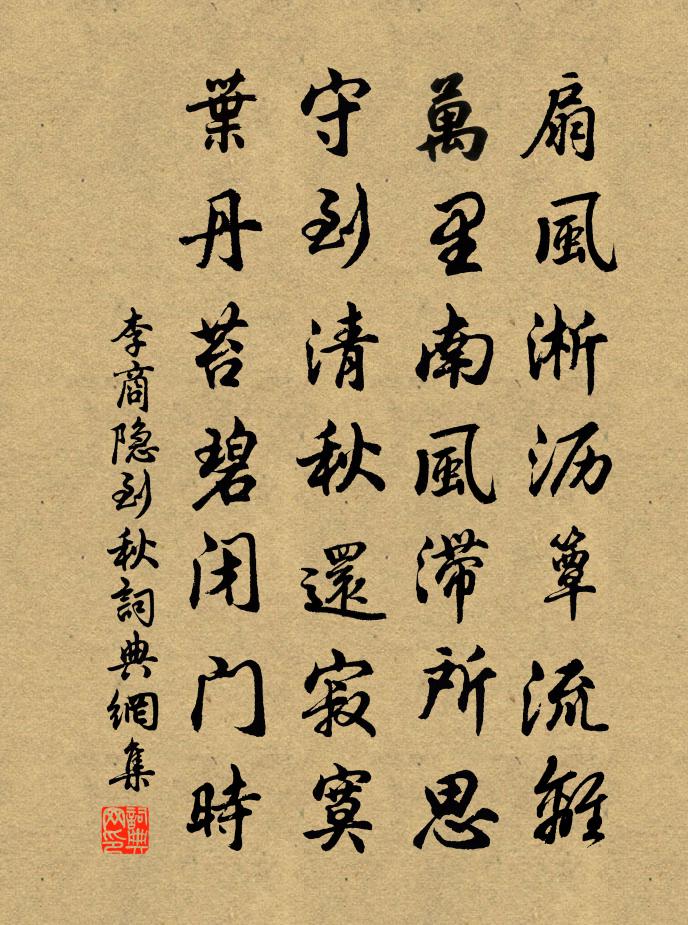 扇風淅沥簟流離
萬里南風滯所思
守到清秋還寂寞
葉丹苔碧闭门時
李商隐到秋詞典網集
詞典网印